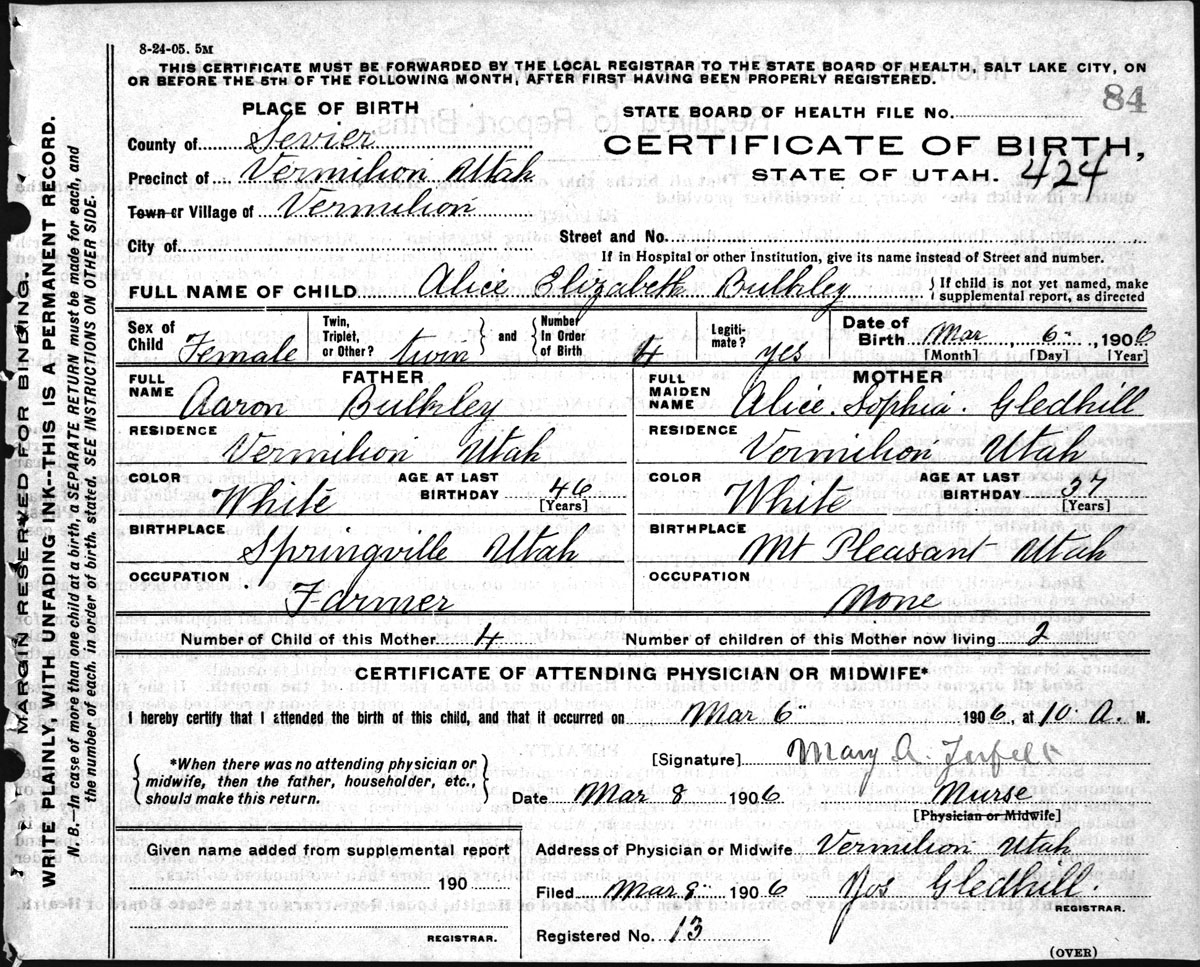 8-24-05. 5M
THIS CERTIFICATE MUST BE FORWARDED BY THE LOCAL REGISTRAR TO THE STATE BOARD OF HEALTH, SALT LAKE CITY, ON
OR BEFORE THE 5TH OF THE FOLLOWING MONTH, AFTER FIRST HAVING BEEN PROPERLY REGISTERED.
84
PLACE OF BIRTH
STATE BOARD OF HEALTH FILE No.
County of Sevier
CERTIFICATE OF BIRTH,
Precinct of Vermilion Utah
STATE OF UTAH. 424
Town or Village of Vermilion
City of
Street and No.
If in Hospital or other Institution, give its name instead of Street and number.
FULL NAME OF CHILD Alice Elizabeth Bulkley
If child is not yet named, make
supplemental report, as directed
Sex of Child Female
Twin, Triplet, or Other? twin
and
Number In Order of Birth 4
Legiti- mate? yes
Date of Birth Mar 6 , 1906
[Month] [Day] [Year]
FATHER
FULL NAME Aaron Bulkley
MOTHER
FULL MAIDEN NAME Alice. Sophia. Gledhill
RESIDENCE Vermilion Utah
RESIDENCE Vermilion Utah
COLOR White
AGE AT LAST BIRTHDAY 46
[Years]
COLOR White
AGE AT LAST BIRTHDAY 37
[Years]
BIRTHPLACE Springville Utah
BIRTHPLACE Mt Pleasant Utah
OCCUPATION Farmer
OCCUPATION None
Number of Child of this Mother 4
Number of children of this Mother now living 2
CERTIFICATE OF ATTENDING PHYSICIAN OR MIDWIFE*
I hereby certify that I attended the birth of this child, and that it occurred on Mar 6 1906, at 10. A. M.
*When there was no attending physician or
midwife, then the father, householder, etc.,
should make this return.
[Signature] Mary A.
Date Mar 8 1906 Nurse
[Physician or Midwife]
Given name added from supplemental report
190
REGISTRAR.
Address of Physician or Midwife Vermilion Utah
Filed Mar 8 1906 Jos Gledhill.
REGISTRAR.
Registered No. 13
(OVER)
MARGIN RESERVED FOR BINDING.
WRITE PLAINLY, WITH UNFADING INK--THIS IS A PERMANENT RECORD.
N. B.—In case of more than one child at a birth, a SEPARATE RETURN must be made for each, and
the number of each, in order of birth, stated. SEE INSTRUCTIONS ON OTHER SIDE.